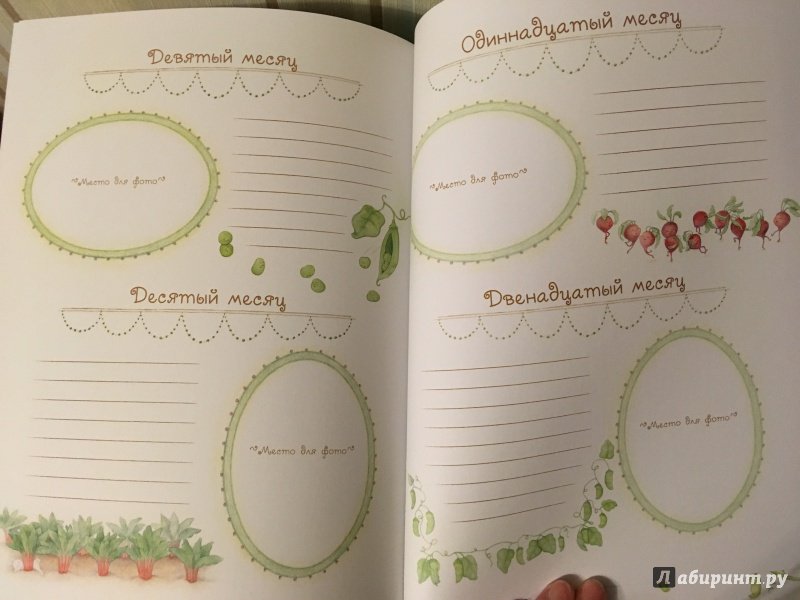 Девятый месяц
~Место для фото~
Десятый месяц
~Место для фото~
Одиннадцатый месяц
~Место для фото~
Двенадцатый месяц
~Место для фото~
Лабиринт.ру